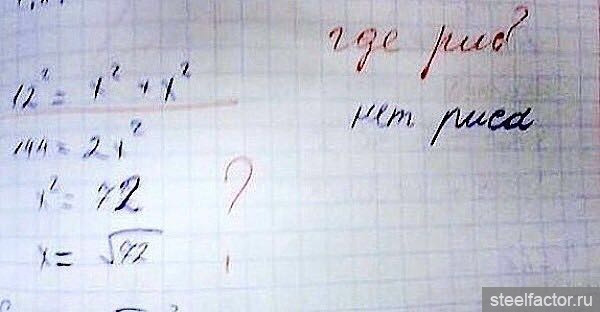 12² = x² + x²
144 = 2x²
x² = 72
x = √72
?
где рис?
нет риса
steelfactor.ru